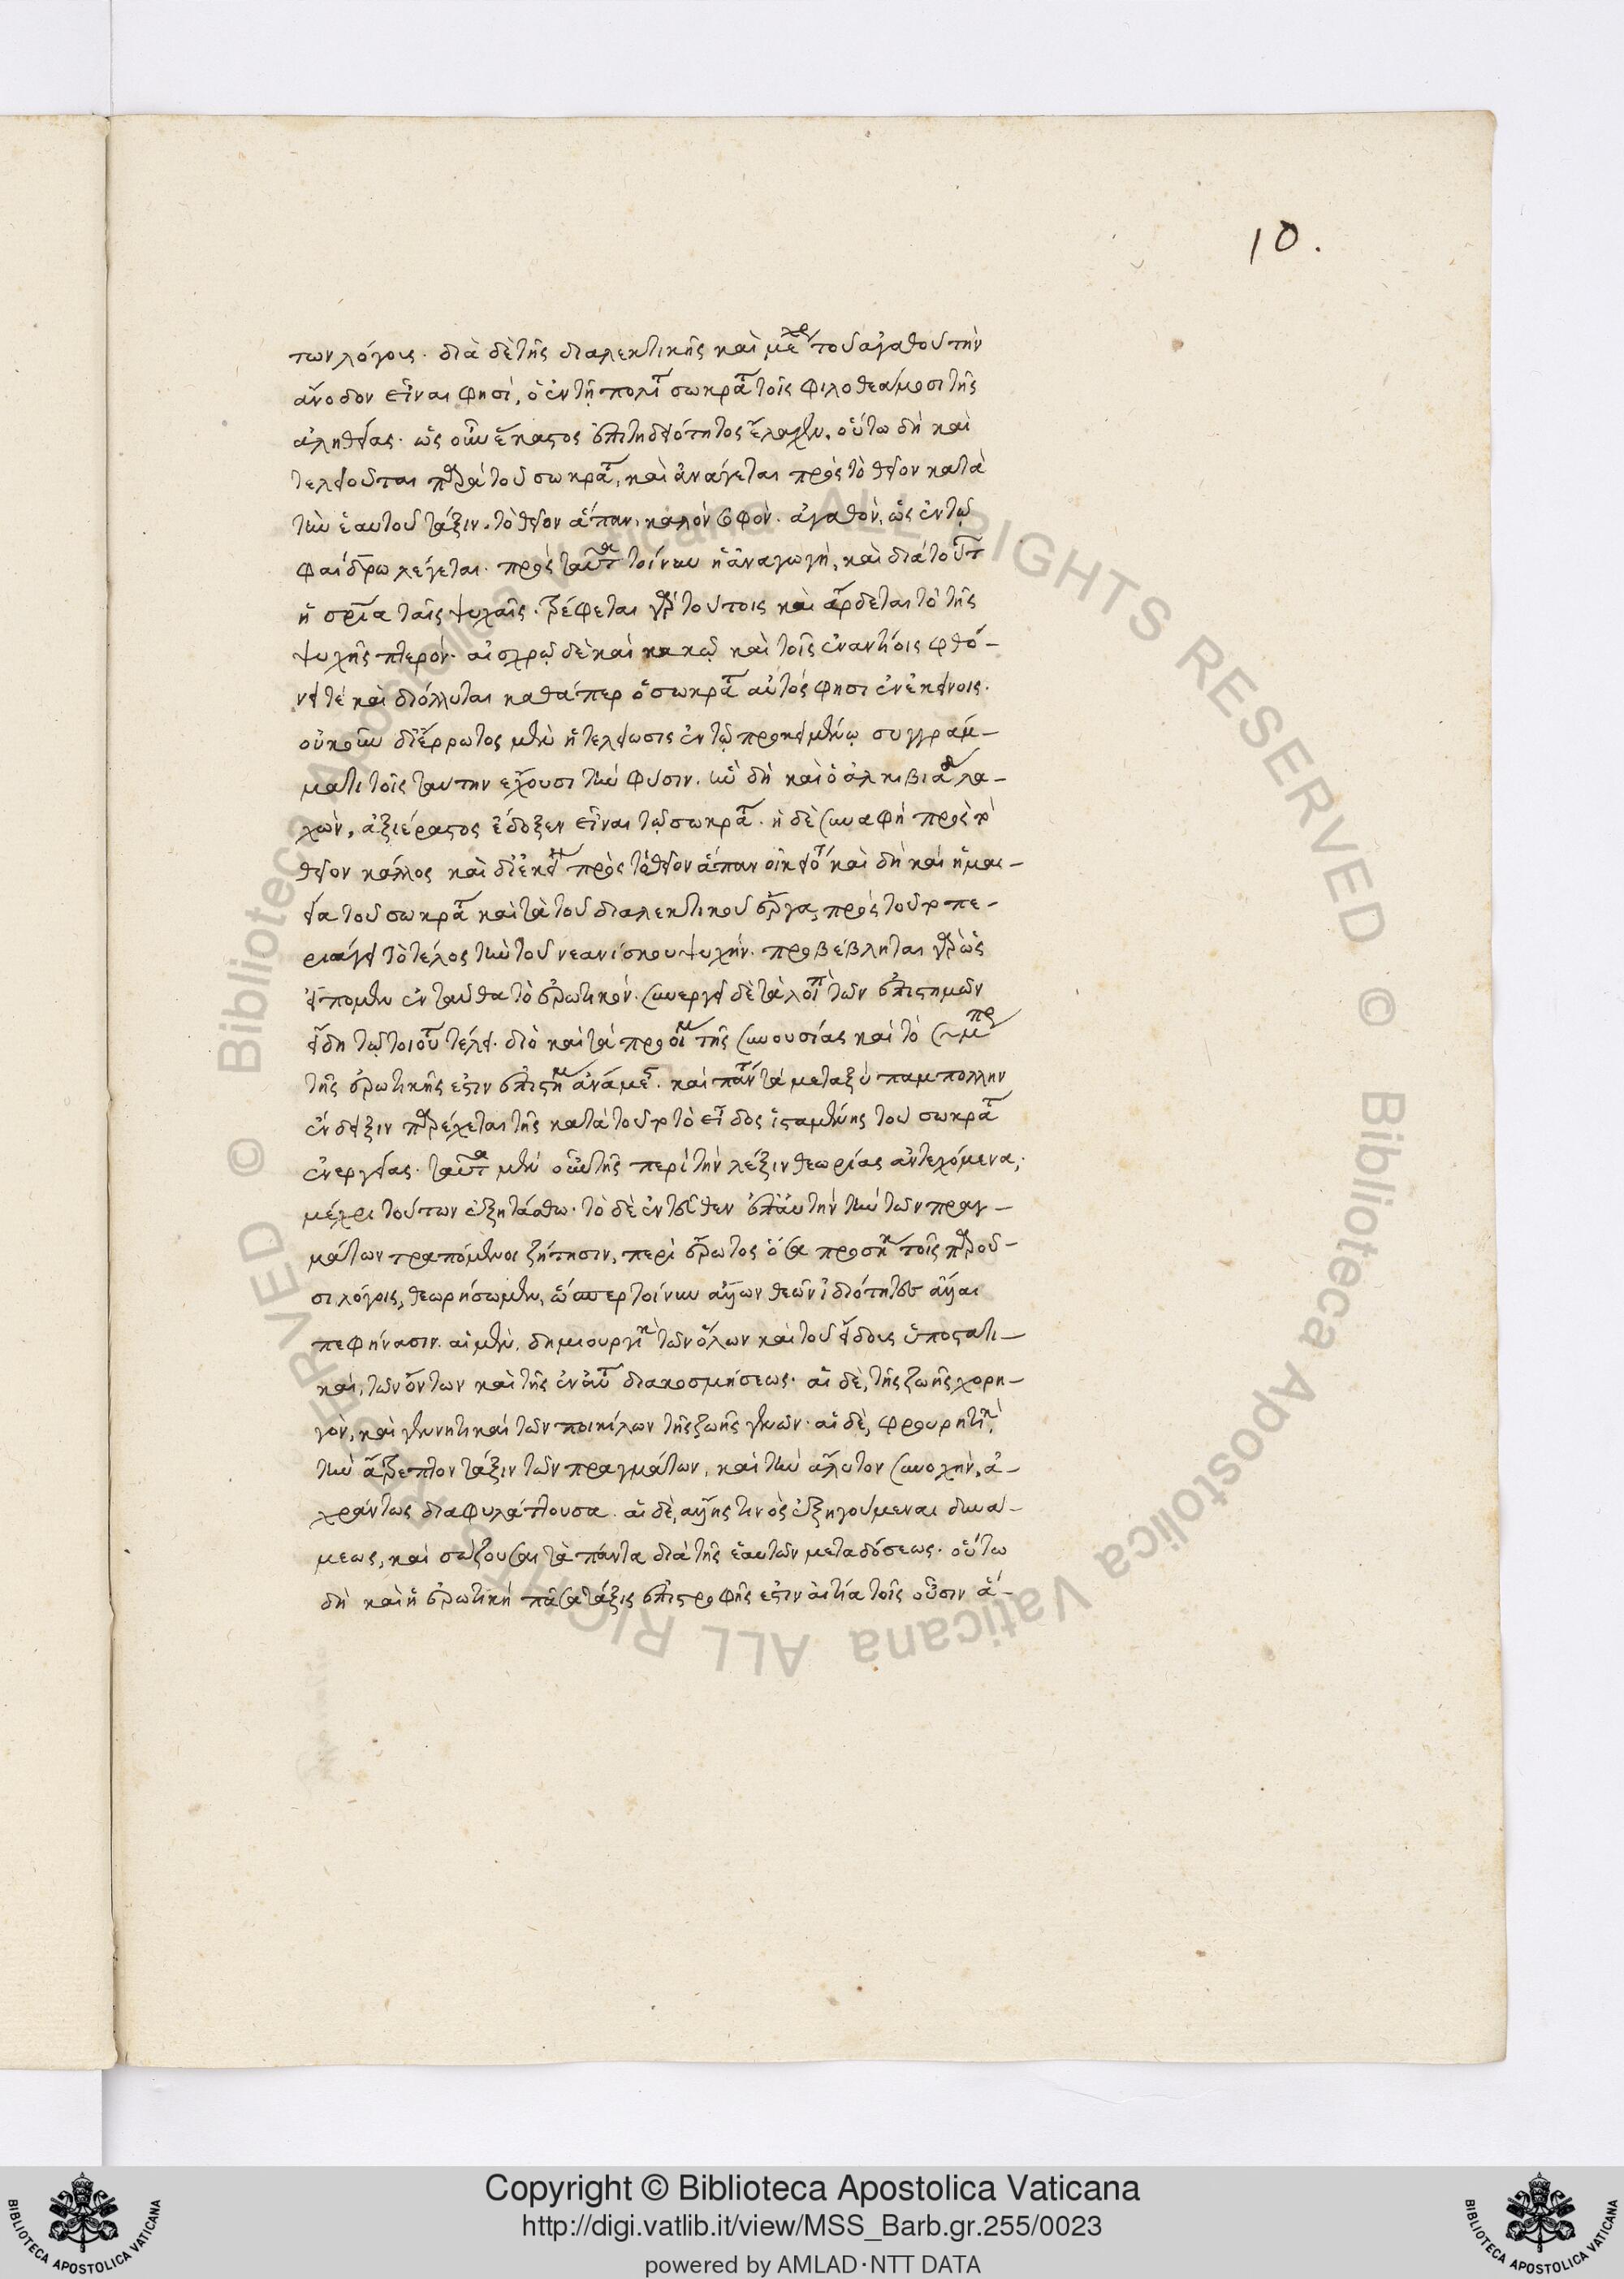 10.
των λόγοις. διὰ δὲ τῆς διαλεκτικῆς καὶ μέχρ τοῦ ἀγαθοῦ τὴν
ἄνοδον εἶναι φησὶ, ὁ ἐν τῇ πολιτ σωκράτ τοῖς φιλοθεάμοσι τῆς
ἀληθείας. ὡς οὖν ἕκαστος ἐπιτηδειότητος ἔλαχεν, οὕτω δὴ καὶ
τελειοῦται παρὰ τοῦ σωκράτ, καὶ ἀνάγεται πρὸς τὸ θεῖον κατὰ
τὴν ἑαυτοῦ τάξιν. τὸ θεῖον ἅπαν, καλὸν σοφὸν. ἀγαθὸν, ὡς ἐν τῷ
φαίδρω λέγεται. πρὸς ταῦτα τοίνυν ἡ ἀναγωγὴ, καὶ διὰ τούτ
ἡ σρία ταῖς ψυχαῖς. τρέφεται γὰρ τούτοις καὶ ἄρδεται τὸ τῆς
ψυχῆς πτερόν. αἰσχρῷ δὲ καὶ κακῷ καὶ τοῖς ἐναντίοις φθί-
νει τέ καὶ διόλλυται καθάπερ ὁ σωκράτ αὐτός φησι ἐν ἐκείνοις.
οὐκοῦν δι' ἔρωτος μὲν ἡ τελείωσις ἐν τῷ προκειμένῳ συγγράμ-
ματι τοῖς ταύτην ἔχουσι τὴν φύσιν. ἣν δὴ καὶ ὁ ἀλκιβιάδ λα-
χὼν, ἀξιέραστος ἔδοξεν εἶναι τῷ σωκράτ. ἡ δὲ συναφὴ πρὸς τὸ
θεῖον κάλλος καὶ δι' ἐκείν πρὸς τὸ θεῖον ἅπαν οἰκειότ καὶ δὴ καὶ ἡ μαι-
εία τοῦ σωκράτ καὶ τὰ τοῦ διαλεκτικοῦ ἔργα, πρὸς τοῦτο πε-
ριάγει τὸ τέλος τὴν τοῦ νεανίσκου ψυχήν. προβέβληται γὰρ ὡς
εἴπομεν ἐνταῦθα τὸ ἐρωτικόν. συνεργεῖ δὲ τὰ λοιπ τῶν ἐπιστημῶν
εἴδη τῷ τοιούτ τέλει. διὸ καὶ τὰ προοίμ τῆς συνουσίας καὶ τὸ συμπρ
τῆς ἐρωτικῆς ἐστιν ἐπιστήμ ἀνάμεστ. καὶ πάντ τὰ μεταξὺ παμπόλλην
ἔνδειξιν παρέχεται τῆς κατὰ τοῦτο τὸ εἶδος ἱσταμένης τοῦ σωκράτ
ἐνεργείας. ταῦτα μὲν οὖν τῆς περὶ τὴν λέξιν θεωρίας ἀντεχόμενα,
μέχρι τούτων ἐξητάσθω. τὸ δὲ ἐντεῦθεν ἐπ' αὐτὴν τὴν τῶν πραγ-
μάτων τραπόμενοι ζήτησιν, περὶ ἔρωτος ὅσα προσήκ τοῖς παροῦ-
σι λόγοις, θεωρήσωμεν, ὥσπερ τοίνυν ἄλλων θεῶν ἰδιότητες ἄλλαι
πεφήνασιν. αἱ μὲν, δημιουργικ τῶν ὅλων καὶ τοῦ εἴδους ὑποστατι-
καὶ, τῶν ὄντων καὶ τῆς ἐν αὐτ διακοσμήσεως. αἱ δὲ, τῆς ζωῆς χορη-
γὸν, καὶ γεννητικαὶ τῶν ποικίλων τῆς ζωῆς γενῶν. αἱ δὲ, φρουρητικ
τὴν ἄτρεπτον τάξιν τῶν πραγμάτων, καὶ τὴν ἄλυτον συνοχὴν, ἀ-
χράντως διαφυλάττουσα. αἱ δὲ, ἄλλης τινὸς ἐξηγούμεναι δυνά-
μεως, καὶ σώζουσαι τὰ πάντα διὰ τῆς ἑαυτῶν μεταδόσεως. οὕτω
δὴ καὶ ἡ ἐρωτικὴ πᾶσα τάξις ἐπιστροφῆς ἐστιν αἰτία τοῖς οὖσιν ἅ-
Copyright © Biblioteca Apostolica Vaticana
http://digi.vatlib.it/view/MSS_Barb.gr.255/0023
powered by AMLAD·NTT DATA
BIBLIOTECA APOSTOLICA VATICANA
BIBLIOTECA APOSTOLICA VATICANA
© Biblioteca Apostolica Vaticana ALL RIGHTS RESERVED © Biblioteca Apostolica Vaticana ALL RIGHTS RESERVED